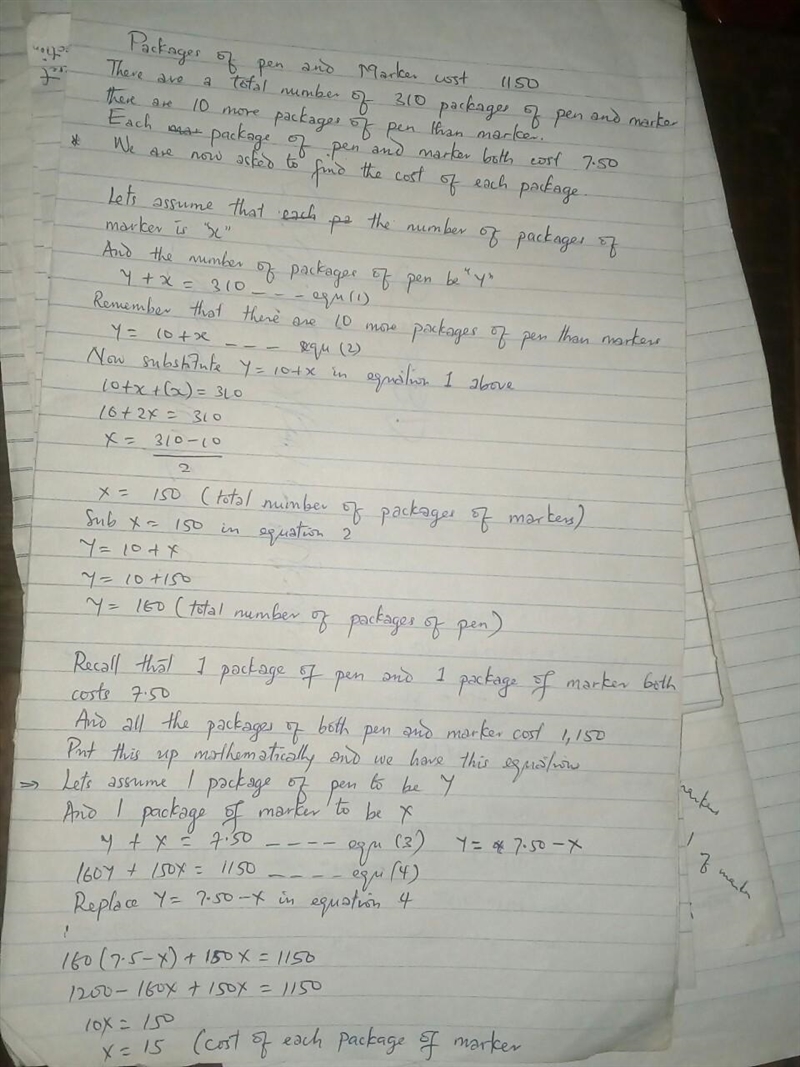 Packages of pen and Marker cost 1150
There are a total number of 310 packages of pen and marker
there are 10 more packages of pen than marker.
Each package of pen and marker both cost 7.50
* We are now asked to find the cost of each package.
Lets assume that each pa the number of packages of
marker is "x"
And the number of packages of pen be "Y"
Y + x = 310 - - - equ(1)
Remember that there are 10 more packages of pen than markers
Y = 10+x - - - equ (2)
Now substitute Y=10+x in equation 1 above
10+x+(x)=310
10+2x = 310
x = 310-10
2
x = 150 (total number of packages of markers)
Sub x = 150 in equation 2
Y = 10 + x
Y = 10 +150
Y = 160 (total number of packages of pen)
Recall that 1 package of pen and 1 package of marker both
costs 7.50
And all the packages of both pen and marker cost 1,150
Put this up mathematically and we have this equation
⇒ Lets assume 1 package of pen to be Y
And 1 package of marker to be X
Y + x = 7.50 - - - - equ (3) Y = 7.50 - x
160Y + 150x = 1150 - - - - equ (4)
Replace Y = 7.50-x in equation 4
160(7.5-x)+150x = 1150
1200 - 160x + 150x = 1150
10x = 150
x = 15 (cost of each package of marker